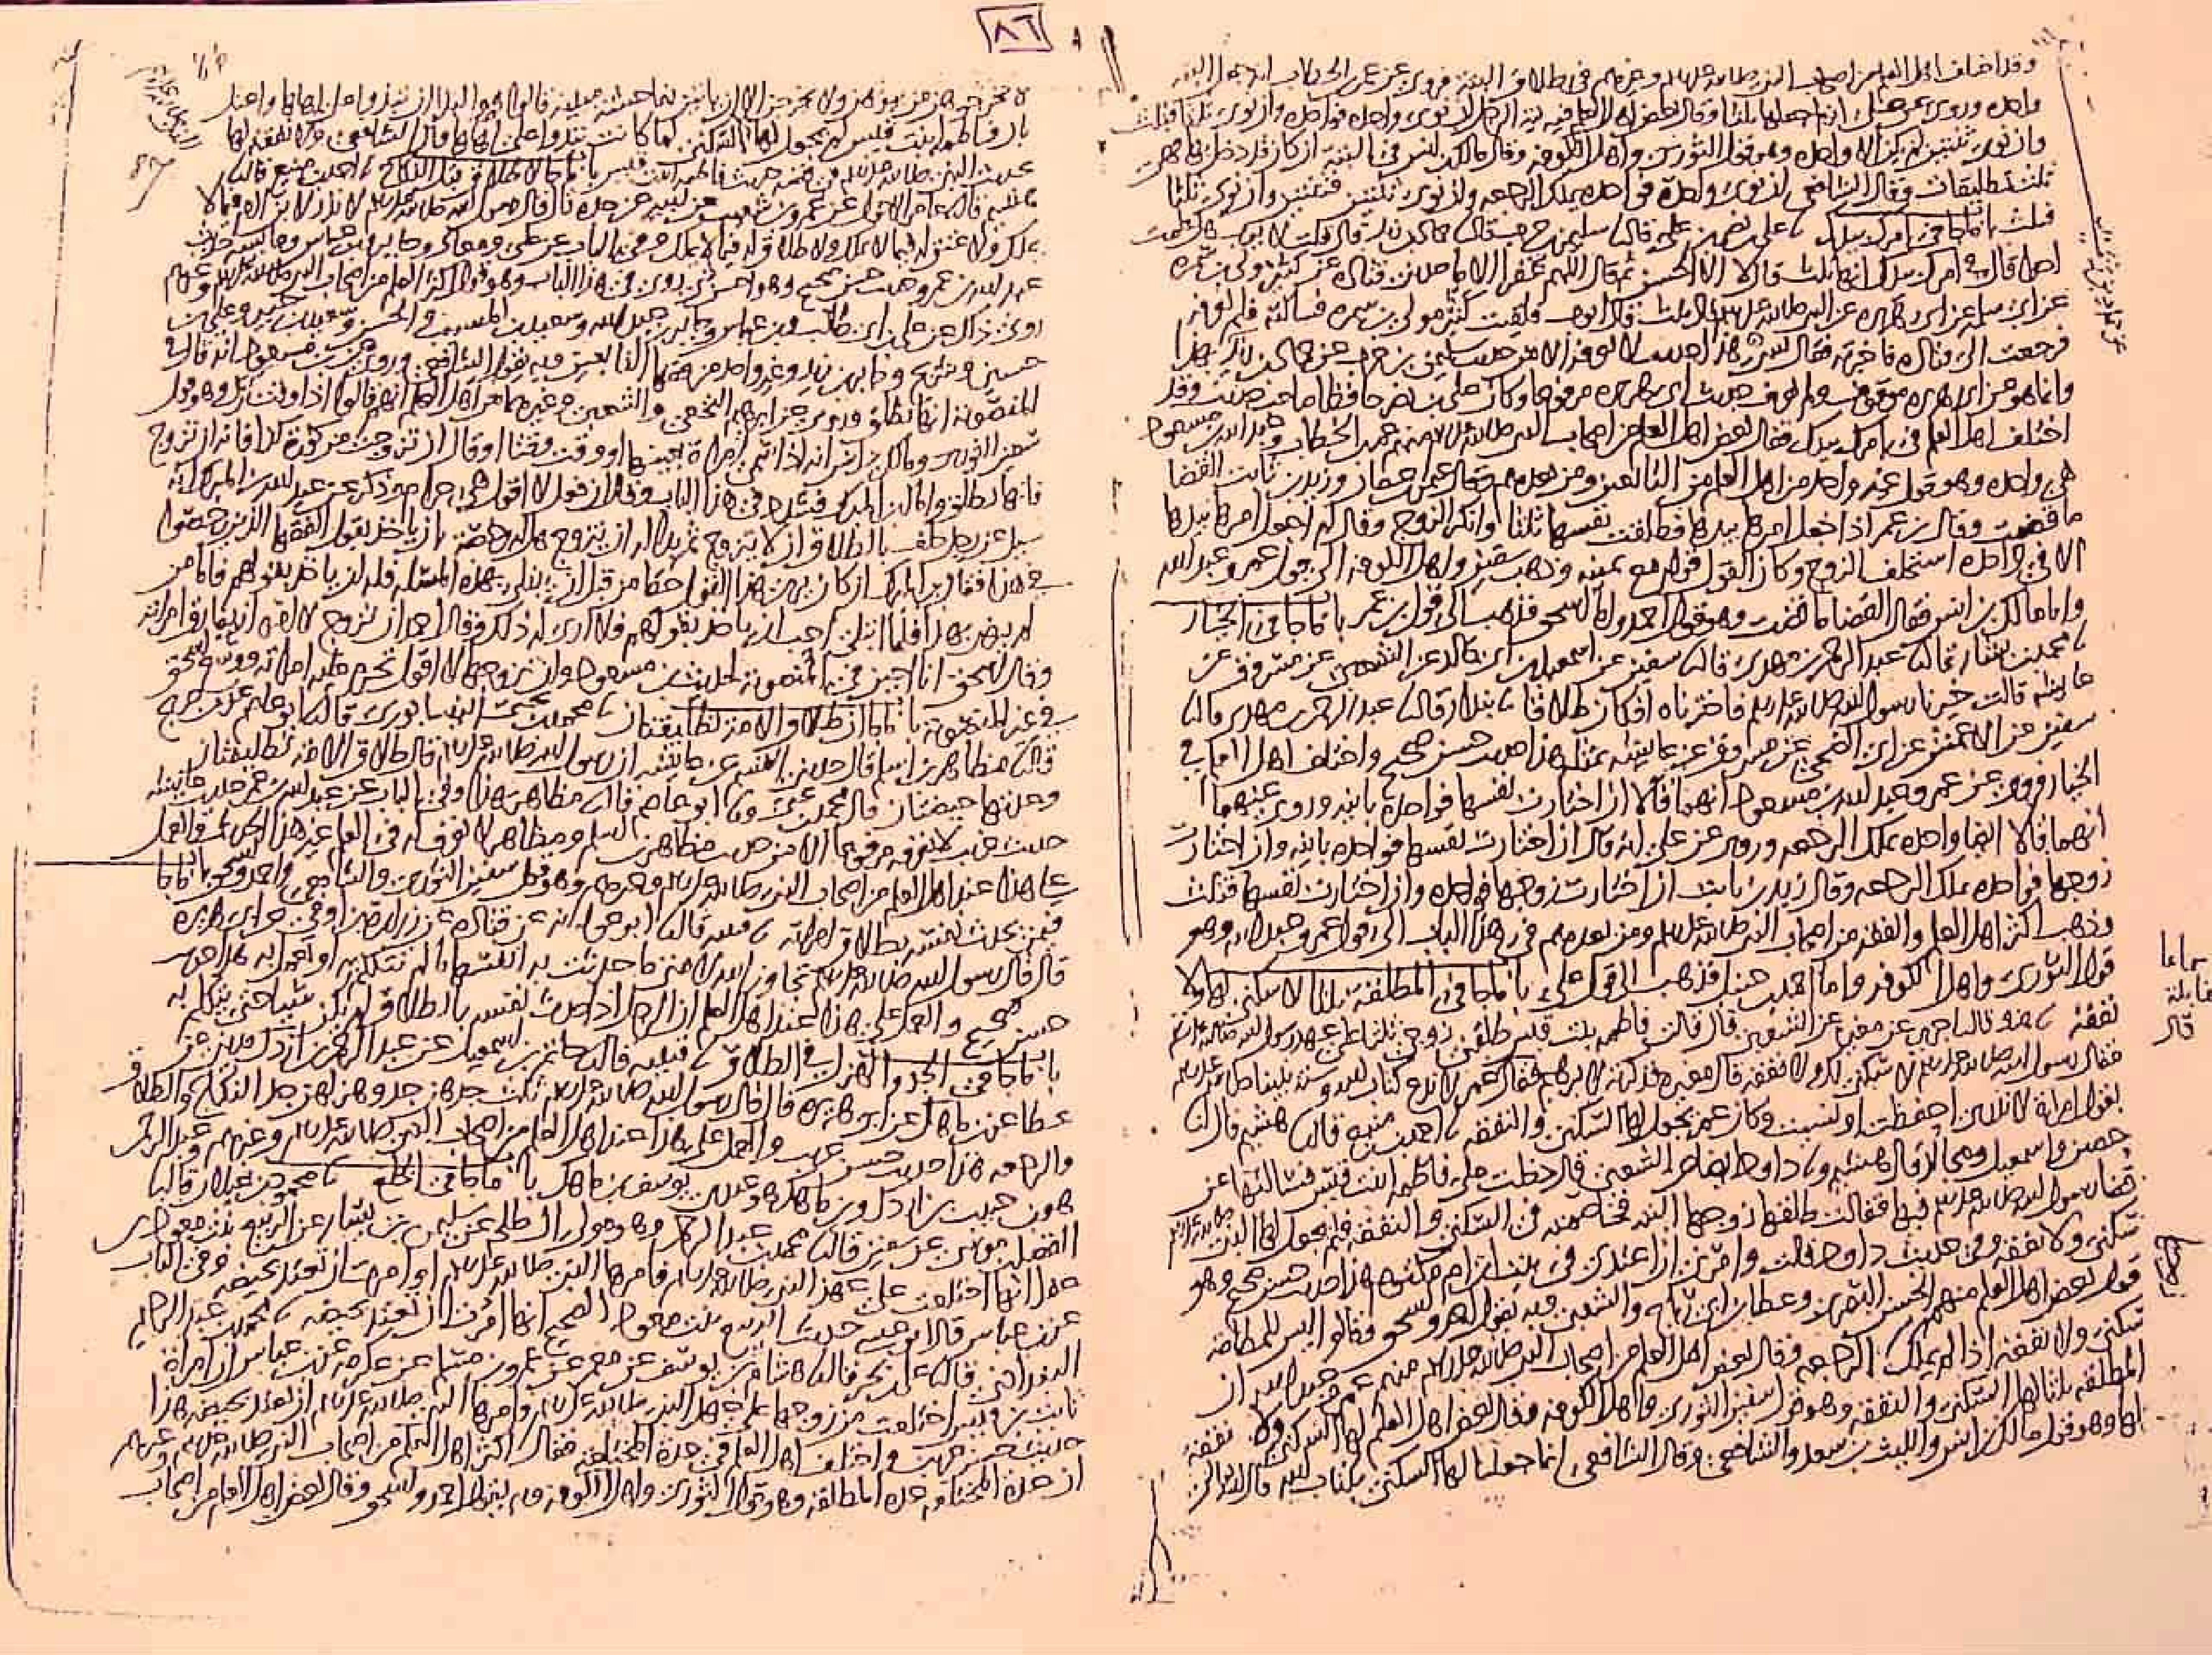 ٨٦
وقد اختلف اهل العلم من اصحاب النبي صلى الله عليه وسلم وغيرهم في طلاق البتة فروي عن عمر بن الخطاب انه جعل البتة
واحدة وروي عن علي انه جعلها ثلثا وقال بعض اهل العلم فيه نية الرجل ان نوى واحدة فواحدة وان نوى ثلثا فثلث
وان نوى ثنتين لم يكن الا واحدة وهو قول الثوري واهل الكوفة وقال مالك بن انس في البتة ان كان قد دخل بها فهي
ثلث تطليقات وقال الشافعي ان نوى واحدة فواحدة يملك الرجعة وان نوى ثنتين فثنتين وان نوى ثلثا
فثلث باب ما جا في امرك بيدك علي بن نصر بن علي قال سليمن بن حرب قال حماد بن زيد قال قلت لايوب هل علمت
احدا قال في امرك بيدك انها ثلث قال لا الا الحسن ثم قال اللهم غفرا الا ما حدثني قتادة عن كثير مولى بن سمرة
عن ابي سلمة عن ابي هريرة عن النبي صلى الله عليه وسلم قال ثلث قال ايوب فلقيت كثير مولى بن سمرة فسالته فلم يعرفه
فرجعت الى قتادة فاخبرته فقال نسي هذا حديث لا نعرفه الا من حديث سليمن بن حرب عن حماد بن زيد بهذا
وانما هو عن ابي هريرة موقوف ولم يعرف حديث ابي هريرة مرفوعا وكان علي بن نصر حافظا صاحب حديث وقد
اختلف اهل العلم في امرك بيدك فقال بعض اهل العلم من اصحاب النبي صلى الله عليه وسلم منهم عمر بن الخطاب وعبد الله بن مسعود
هي واحدة وهو قول غير واحد من اهل العلم من التابعين ومن بعدهم وقال عثمان بن عفان وزيد بن ثابت القضا
ما قضت وقال بن عمر اذا جعل امرها بيدها فطلقت نفسها ثلثا وانكر الزوج وقال لم اجعل امرها بيدها
الا في واحدة استحلف الزوج وكان القول قوله مع يمينه وذهب سفين واهل الكوفة الى قول عمر وعبد الله
واما مالك بن انس فقال القضا ما قضت وهو قول احمد واما اسحق فذهب الى قول بن عمر باب ما جا في الخيار
محمد بن بشار قال عبد الرحمن بن مهدي قال سفين عن اسمعيل بن ابي خالد عن الشعبي عن مسروق عن
عايشة قالت خيرنا رسول الله صلى الله عليه وسلم فاخترناه افكان طلاقا بندار قال عبد الرحمن بن مهدي قال
سفين عن الاعمش عن ابي الضحى عن مسروق عن عايشة بمثله هذا حديث حسن صحيح واختلف اهل العلم في
الخيار فروي عن عمر وعبد الله بن مسعود انهما قالا ان اختارت نفسها فواحدة باينة وروي عنهما
انهما قالا ايضا واحدة يملك الرجعة وروي عن علي انه قال ان اختارت نفسها فواحدة باينة وان اختارت
زوجها فواحدة يملك الرجعة وقال زيد بن ثابت ان اختارت زوجها فواحدة وان اختارت نفسها فثلث
وذهب اكثر اهل العلم والفقه من اصحاب النبي صلى الله عليه وسلم ومن بعدهم في هذا الباب الى قول عمر وعبد الله وهو
قول الثوري واهل الكوفة واما احمد بن حنبل فذهب الى قول علي باب ما جا في المطلقة ثلثا لا سكنى لها ولا
نفقة هناد قال جرير عن مغيرة عن الشعبي قال قالت فاطمة بنت قيس طلقني زوجي ثلثا على عهد رسول الله صلى الله عليه وسلم
فقال رسول الله صلى الله عليه وسلم لا سكنى لك ولا نفقة قال مغيرة فذكرته لابرهيم فقال قال عمر لا ندع كتاب الله وسنة نبينا صلى الله عليه وسلم
بقول امراة لا ندري احفظت او نسيت وكان عمر يجعل لها السكنى والنفقة احمد بن منيع قال هشيم قال انا
حصين واسمعيل ومجالد قال هشيم و داود ايضا عن الشعبي قال دخلت على فاطمة ابنت قيس فسالتها عن
قضا رسول الله صلى الله عليه وسلم فيها فقالت طلقها زوجها البتة فخاصمته في السكنى والنفقة فلم يجعل لها النبي صلى الله عليه وسلم
سكنى ولا نفقة وفي حديث داود قالت وامرني ان اعتد في بيت ابن ام مكتوم هذا حديث حسن صحيح وهو
قول بعض اهل العلم منهم الحسن البصري وعطا بن ابي رباح والشعبي وبه يقول احمد واسحق وقالوا ليس للمطلقة
سكنى ولا نفقة اذا لم يملك الرجعة وقال بعض اهل العلم من اصحاب النبي صلى الله عليه وسلم منهم عمر وعبد الله ان
المطلقة ثلثا لها السكنى والنفقة وهو قول سفين الثوري واهل الكوفة وقال بعض اهل العلم لها السكنى ولا نفقة
لها وهو قول مالك بن انس والليث بن سعد والشافعي وقال الشافعي انما جعلنا لها السكنى بكتاب الله قال الله
قال
لا تخرجوهن من بيوتهن ولا يخرجن الا ان ياتين بفاحشة مبينة قالوا هو البذا ان تبذو على اهلها واعتل
بان فاطمة ابنت قيس لم يجعل لها السكنى لما كانت تبذو على اهلها قال الشافعي ولا نفقة لها
لحديث النبي صلى الله عليه وسلم في قصة حديث فاطمة ابنت قيس باب ما جا لا طلاق قبل النكاح احمد بن منيع قال
هشيم قال عامر الاحول عن عمرو بن شعيب عن ابيه عن جده قال قال رسول الله صلى الله عليه وسلم لا نذر لابن ادم فيما لا
يملك ولا عتق له فيما لا يملك ولا طلاق له فيما لا يملك وفي الباب عن علي ومعاذ وجابر وبن عباس وعايشة حديث
عبد الله بن عمرو حديث حسن صحيح وهو احسن شي روي في هذا الباب وهو قول اكثر اهل العلم من اصحاب النبي صلى الله عليه وسلم وغيرهم
روي ذلك عن علي بن ابي طالب وبن عباس وجابر بن عبد الله وسعيد بن المسيب والحسن وسعيد بن جبير وعلي بن
حسين وشريح وجابر بن زيد وغير واحد من فقها التابعين وبه يقول الشافعي وروي عن بن مسعود انه قال في
المنصوبة انها تطلق وروي عن ابرهيم النخعي والشعبي وغيرهما من اهل العلم انهم قالوا اذا وقت نزل وهو قول
سفين الثوري ومالك بن انس انه اذا سمى امراة بعينها او وقت وقتا او قال ان تزوجت من كورة كذا فانه ان تزوج
فانها تطلق واما بن المبارك فشدد في هذا الباب وقال ان فعل لا اقول هي حرام وذكر عن عبد الله بن المبارك انه
سيل عن رجل حلف بالطلاق ان لا يتزوج ثم بدا له ان يتزوج هل له رخصة بان ياخذ بقول الفقها الذين رخصوا
في هذا فقال بن المبارك ان كان يرى هذا القول حقا من قبل ان يبتلى بهذه المسلة فله ان ياخذ بقولهم فاما من
لم يرض بهذا فلما ابتلي احب ان ياخذ بقولهم فلا ارى له ذلك وقال احمد ان تزوج لا امره ان يفارق امراته
وقال اسحق انا اجيز في المنصوبة لحديث بن مسعود وان تزوجها لا اقول تحرم عليه امراته ووسع اسحق
في غير المنصوبة باب ما جا ان طلاق الامة تطليقتان محمد بن يحيى النيسابوري قال ابو عاصم عن بن جريج
قال مظاهر بن اسلم قال حدثني القسم عن عايشة ان رسول الله صلى الله عليه وسلم قال طلاق الامة تطليقتان
وعدتها حيضتان قال محمد بن يحيى و ابو عاصم قال مظاهر بهذا وفي الباب عن عبد الله بن عمر حديث عايشة
حديث غريب لا نعرفه مرفوعا الا من حديث مظاهر بن اسلم ومظاهر لا نعرف له في العلم غير هذا الحديث والعمل
على هذا عند اهل العلم من اصحاب النبي صلى الله عليه وسلم وغيرهم وهو قول سفين الثوري والشافعي واحمد واسحق باب ما جا
فيمن يحدث نفسه بطلاق امراته قتيبة قال ابو عوانة عن قتادة عن زرارة بن اوفى عن ابي هريرة
قال قال رسول الله صلى الله عليه وسلم تجاوز الله لامتي ما حدثت به انفسها ما لم تتكلم به او تعمل به هذا حديث
حسن صحيح والعمل على هذا عند اهل العلم ان الرجل اذا حدث نفسه بالطلاق لم يكن شيا حتى يتكلم به
باب ما جا في الجد والهزل في الطلاق قتيبة قال حاتم بن اسمعيل عن عبد الرحمن بن ادرك مديني عن
عطا عن بن ماهك عن ابو هريرة قال قال رسول الله صلى الله عليه وسلم ثلث جدهن جد وهزلهن جد النكاح والطلاق
والرجعة هذا حديث حسن غريب والعمل على هذا عند اهل العلم من اصحاب النبي صلى الله عليه وسلم وغيرهم وعبد الرحمن
هو بن حبيب بن ادرك وبن ماهك هو عندي يوسف بن ماهك باب ما جا في الخلع محمود بن غيلان قال
الفضل بن موسى عن سفين قال محمد بن عبد الرحمن وهو مولى ال طلحة عن سليمن بن يسار عن الربيع بنت معوذ بن
عفرا انها اختلعت على عهد النبي صلى الله عليه وسلم فامرها النبي صلى الله عليه وسلم او امرت ان تعتد بحيضة وفي الباب
عن بن عباس قال ابو عيسى حديث الربيع بنت معوذ الصحيح انها امرت ان تعتد بحيضة محمد بن عبد الرحيم
البغدادي قال علي بن بحر قال هشام بن يوسف عن معمر عن عمرو بن مسلم عن عكرمة عن بن عباس ان امراة
ثابت بن قيس اختلعت من زوجها على عهد النبي صلى الله عليه وسلم وامرها النبي صلى الله عليه وسلم ان تعتد بحيضة هذا
حديث حسن غريب واختلف اهل العلم في عدة المختلعة فقال اكثر اهل العلم من اصحاب النبي صلى الله عليه وسلم وغيرهم
ان عدة المختلعة عدة المطلقة وهو قول الثوري واهل الكوفة وبه يقول احمد واسحق وقال بعض اهل العلم من اصحاب